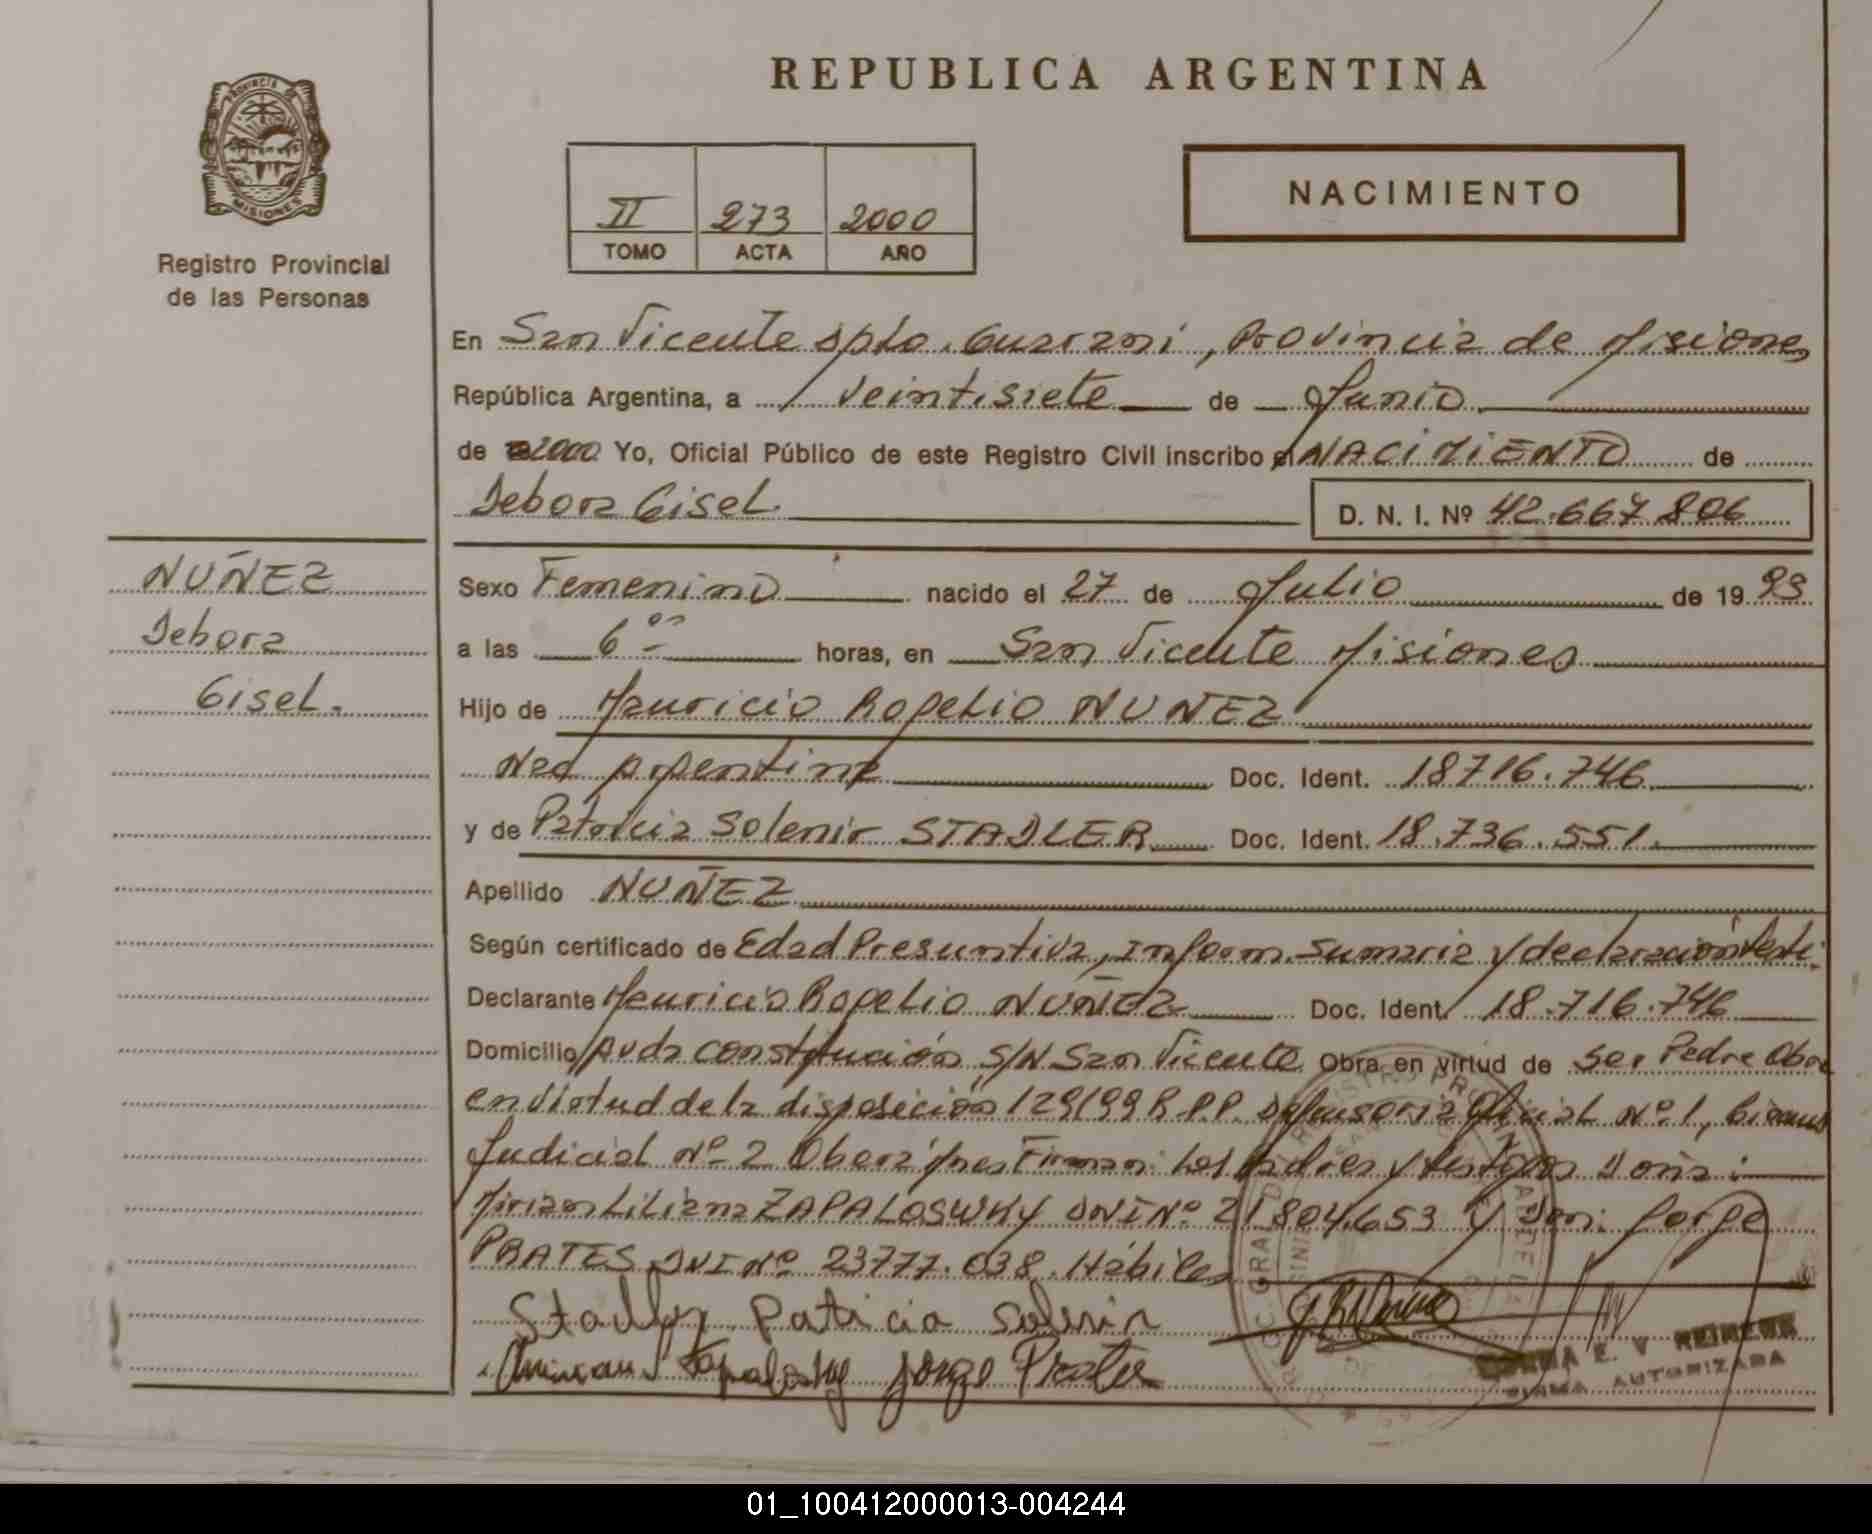 REPUBLICA ARGENTINA
PROVINCIA DE
MISIONES
Registro Provincial
de las Personas
II 273 2000
TOMO ACTA AÑO
NACIMIENTO
En San Vicente Dpto. Guarani, Provincia de Misiones
República Argentina, a Veintisiete de Junio
de 2000 Yo, Oficial Público de este Registro Civil inscribo el NACIMIENTO de
Debora Gisel. D. N. I. Nº 42.667.806
NUÑEZ
Debora
Gisel.
Sexo Femenino nacido el 27 de Julio de 19 93
a las 6 horas, en San Vicente Misiones
Hijo de Mauricio Rogelio NUÑEZ
Nac Argentina Doc. Ident. 18716.746
y de Patricia Solenir STADLER Doc. Ident. 18.736.551.
Apellido NUÑEZ
Según certificado de Edad Presuntiva, Inform. Sumaria y declaración testi.
Declarante Mauricio Rogelio NUÑEZ Doc. Ident. 18.716.746
Domicilio Avda Constitución S/N San Vicente Obra en virtud de ser Padre Obra
en virtud de la disposición 129/99 R.P.P. Defensoria Oficial Nº 1,
Judicial Nº 2 Obera Mnes Firman: Los Padres y testigos Doña:
Miriam Liliana ZAPALOSWKY DNI Nº 21804.653 y Don: Jorge
PRATES DNI Nº 23777.038. Hábiles
Stadler Patricia Solenir
Miriam Zapalosky Jorge Prates
E. V. REIMERR
FIRMA AUTORIZADA
01_100412000013-004244